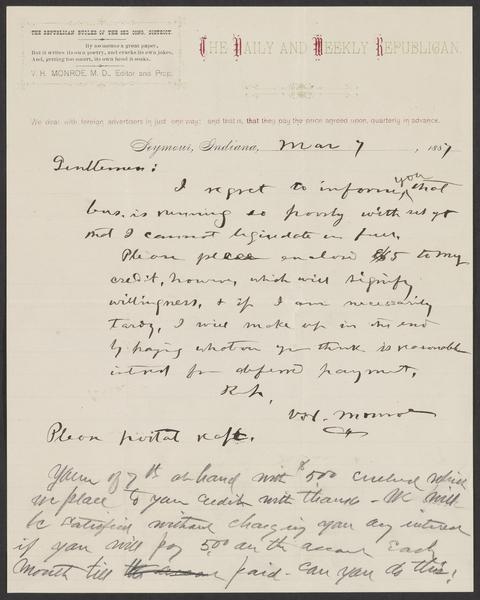 THE REPUBLICAN BUGLER OF THE 3RD CONG. DISTRICT.
By no means a great paper,
But it writes its own poetry, and cracks its own jokes,
And, getting too smart, its own head it soaks.
V. H. MONROE, M. D., Editor and Prop.
THE DAILY AND WEEKLY REPUBLICAN.
We deal with foreign advertisers in just one way: and that is, that they pay the price agreed upon, quarterly in advance.
Seymour, Indiana, Mar 7, 1887
Gentlemen:
I regret to inform you that
bus. is running so poorly with us yt
that I cannot liquidate in full.
Please enclose $5 to my
credit, however, which will signify
willingness, & if I am necessarily
tardy, I will make up in the end
by paying whatever you think is reasonable
interest for deferred payment.
V. H. Monroe
Please postal rect.
Yours of 7th at hand with $5.00 enclosed which
we place to your credit with thanks - We will
be satisfied without charging you any interest
if you will pay 5.00 on the account each
month till paid - can you do this?